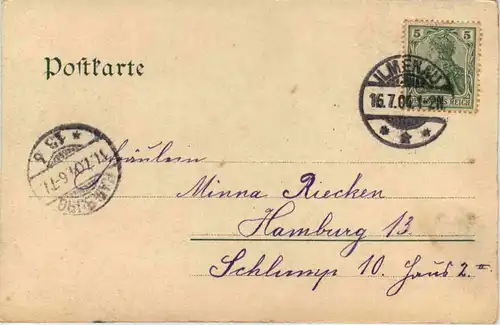 Postkarte
5 5
REICH
ILMENAU
16.7.04.1-2N.
* * *
HAMBURG
Fräulein
Minna Riecken
Hamburg 13.
Schlump 10. Haus 2.